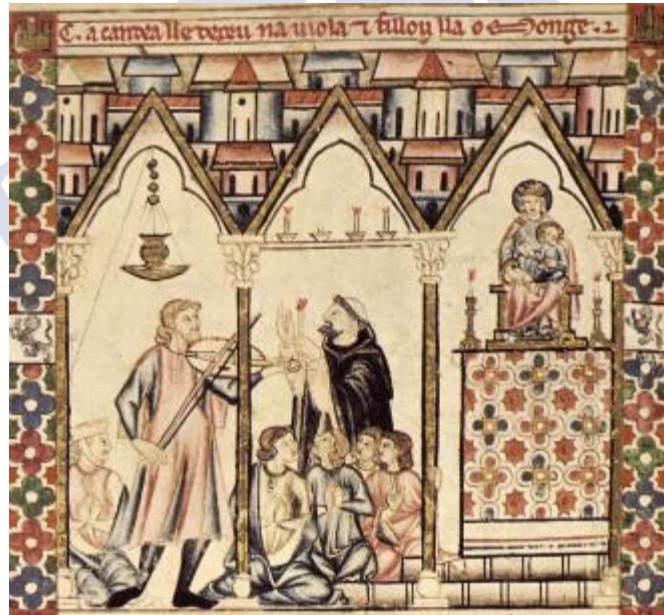 C. a candea lle deceu na uiola ⁊ fillou lla o monge .2